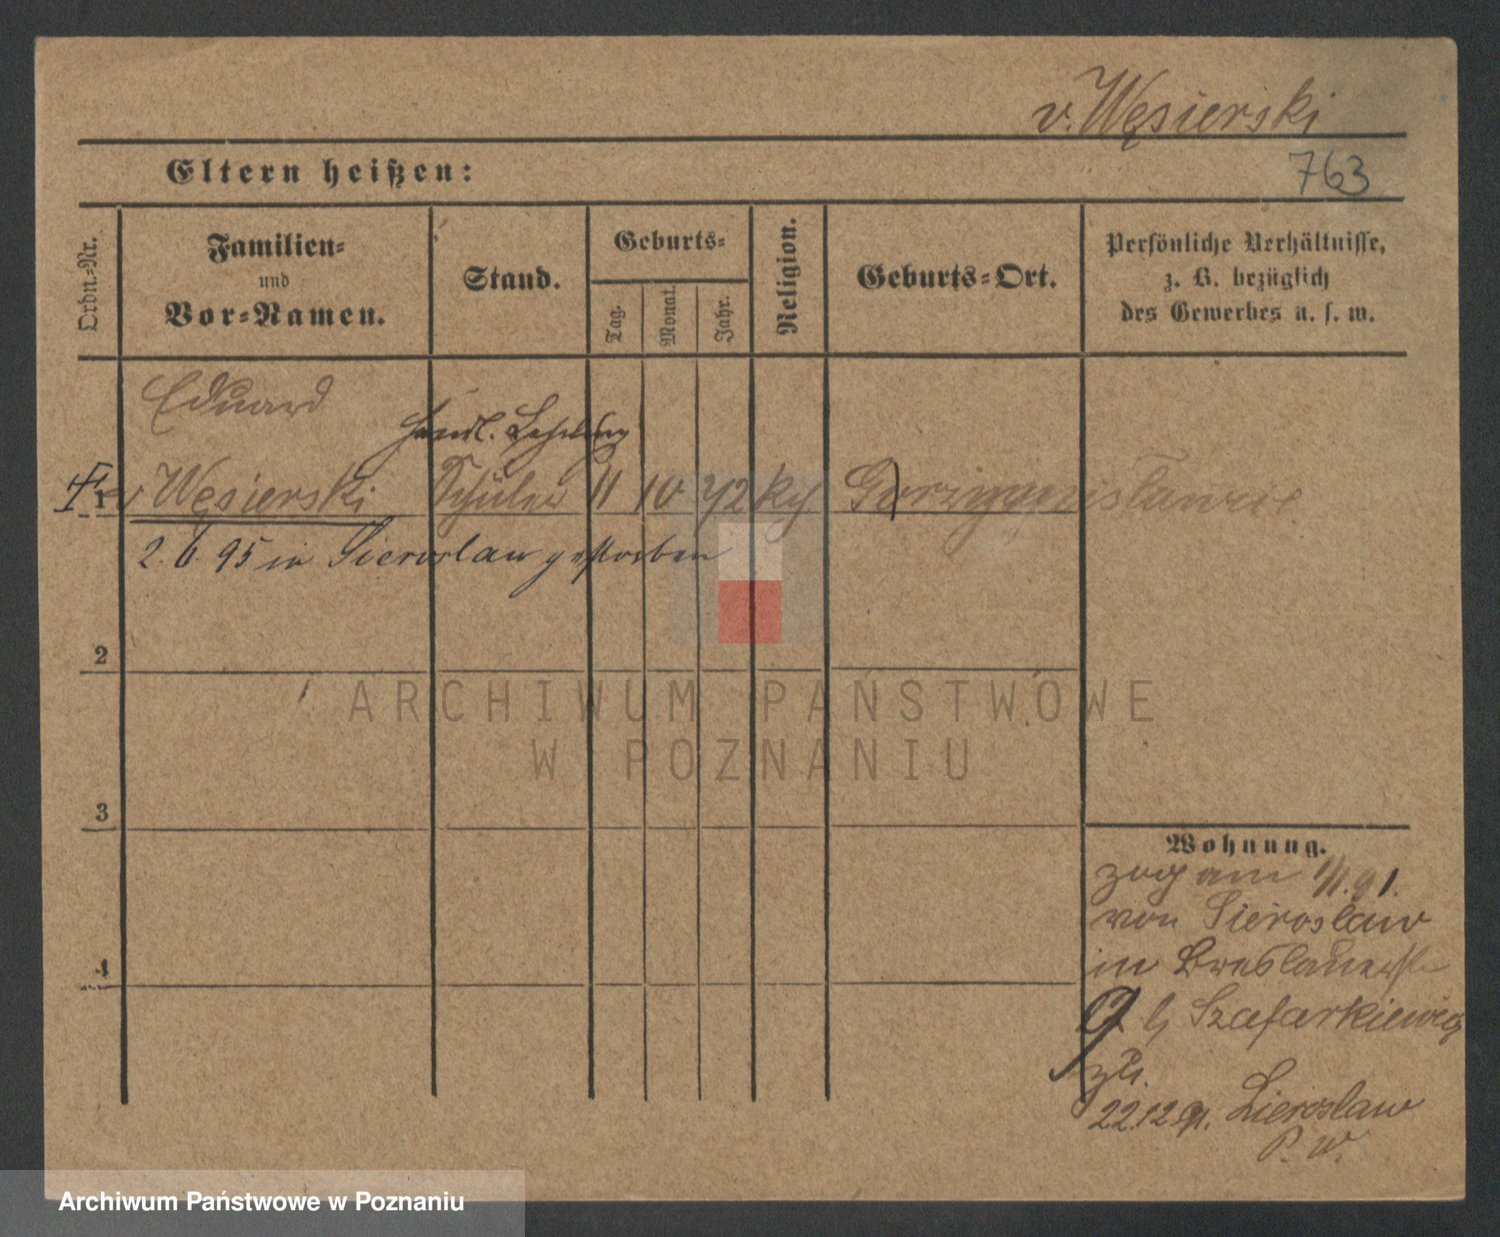 v. Węsierski
Eltern heißen:
763
Ordn.-Nr.
Familien-
und
Vor-Namen.
Stand.
Geburts-
Tag.
Monat.
Jahr.
Religion.
Geburts-Ort.
Persönliche Verhältnisse,
z. B. bezüglich
des Gewerbes u. s. w.
Eduard
Handl. Lehrling
1 v Węsierski Schüler 11 10 72 kth
2. 6. 95 in Sieroslaw gestorben
2
3
4
Wohnung.
zog am 1/1. 91.
von Sieroslaw
in Breslauerstr
9 b/ Szafarkiewicz
zu.
22.12 91. Sieroslaw
P. W.
ARCHIWUM PAŃSTWOWE
W POZNANIU
Archiwum Państwowe w Poznaniu